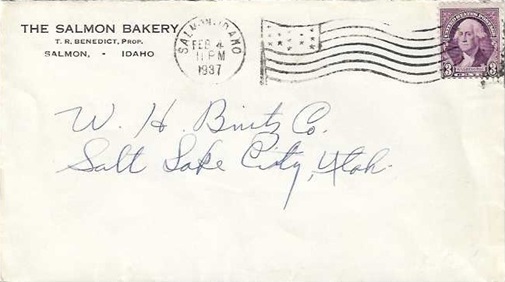 THE SALMON BAKERY
T. R. BENEDICT, PROP.
SALMON, - IDAHO
SALMON, IDAHO
FEB 4
11 PM
1937
UNITED STATES POSTAGE
3 CENTS 3
W. H. Bintz Co.
Salt Lake City, Utah.